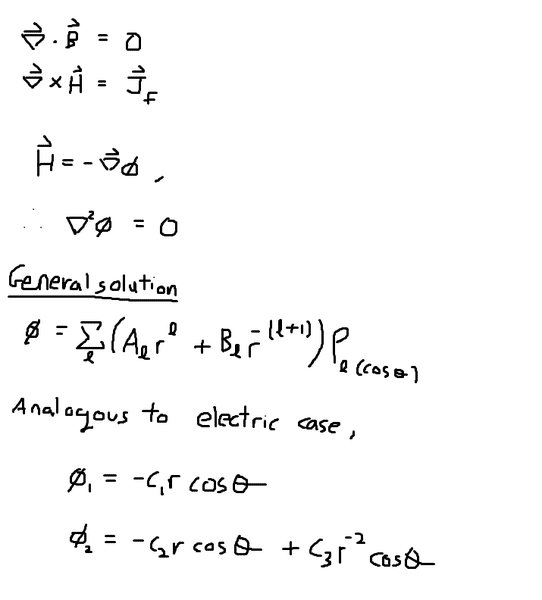 ∇⃗ · B⃗ = 0
∇⃗ × H⃗ = J⃗_F
H⃗ = - ∇⃗ϕ ,
∴ ∇²ϕ = 0
General solution
ϕ = Σ_l (A_l r^l + B_l r^-(l+1)) P_l (cos θ)
Analogous to electric case,
ϕ₁ = -c₁ r cos θ
ϕ₂ = -c₂ r cos θ + c₃ r^-2 cos θ